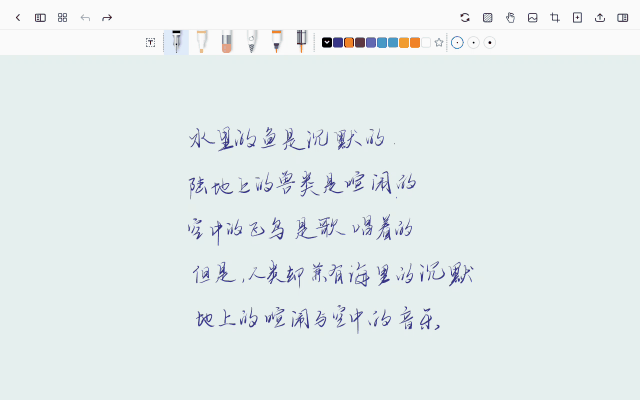 水里的鱼是沉默的.
陆地上的兽类是喧闹的
空中的飞鸟是歌唱着的
但是,人类却兼有海里的沉默
地上的喧闹与空中的音乐,